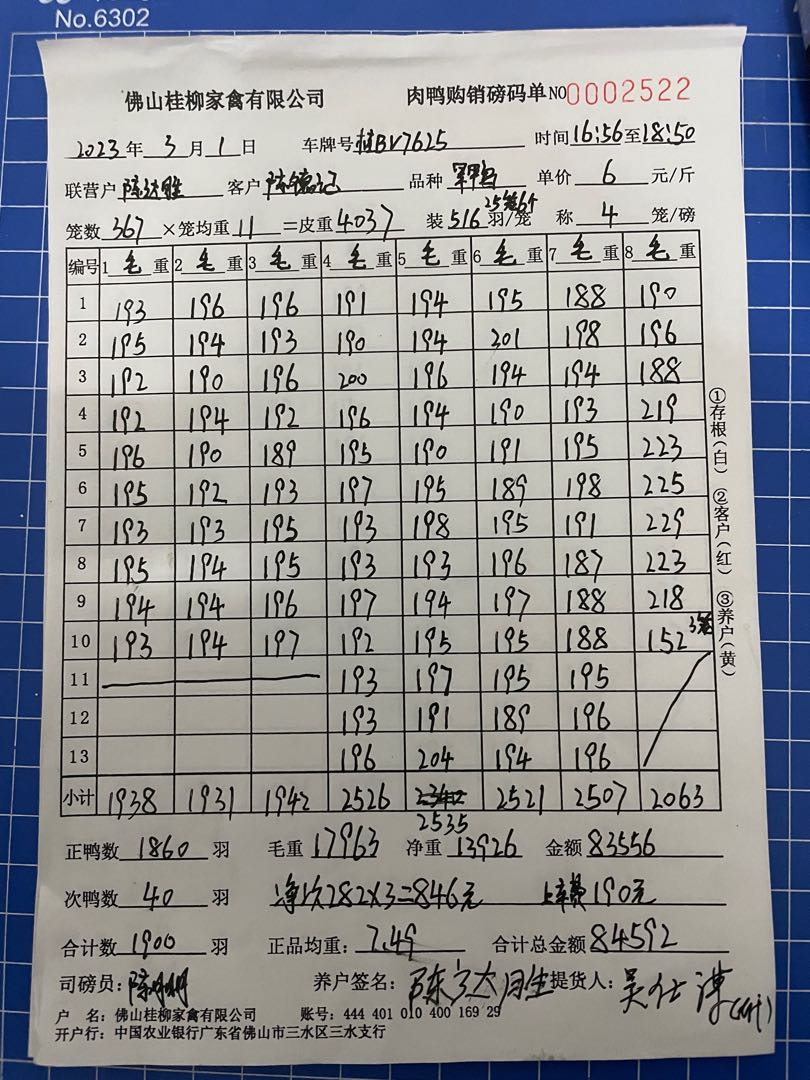 No.6302
佛山桂柳家禽有限公司 肉鸭购销磅码单 NO 0002522
2023年 3月 1日 车牌号 桂BV7625 时间 16:56至18:50
联营户 陈达胜 客户 陈镜记 品种 单价 6 元/斤
笼数 367 ×笼均重 11 =皮重 4037 装 516 25笼6个 羽/笼 称 4 笼/磅
编号 1 毛 重 2 毛 重 3 毛 重 4 毛 重 5 毛 重 6 毛 重 7 毛 重 8 毛 重
1 193 196 196 191 194 195 188 190
2 195 194 193 190 194 201 198 196
3 192 190 196 200 196 194 194 188
4 192 194 192 196 194 190 193 219
5 196 190 189 195 190 191 195 223
6 195 192 193 197 195 189 198 225
7 193 193 195 193 198 195 191 229
8 195 194 195 193 193 196 187 223
9 194 194 196 197 194 197 188 218
10 193 194 197 192 195 195 188 152 3笼
11 193 197 195 195
12 193 191 189 196
13 196 204 194 196
小计 1938 1931 1942 2526 2521 2507 2063
2535
正鸭数 1860 羽 毛重 17963 净重 13926 金额 83556
次鸭数 40 羽 净次282×3=846元 上车费190元
合计数 1900 羽 正品均重: 7.49 合计总金额 84592
司磅员: 养户签名: 提货人: 吴仕
户 名: 佛山桂柳家禽有限公司 账号: 444 401 010 400 169 29
开户行: 中国农业银行广东省佛山市三水区三水支行
①存根(白) ②客户(红) ③养户(黄)